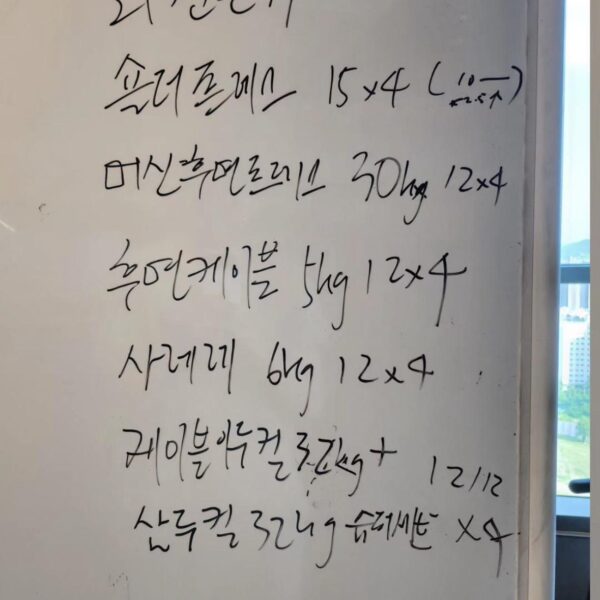 숄더프레스 15x4 (10
머신후면프레스 30kg 12x4
후면케이블 5kg 12x4
사레레 6kg 12x4
케이블이두컬 kg + 12/12
삼두컬 32kg 슈퍼세트 x4